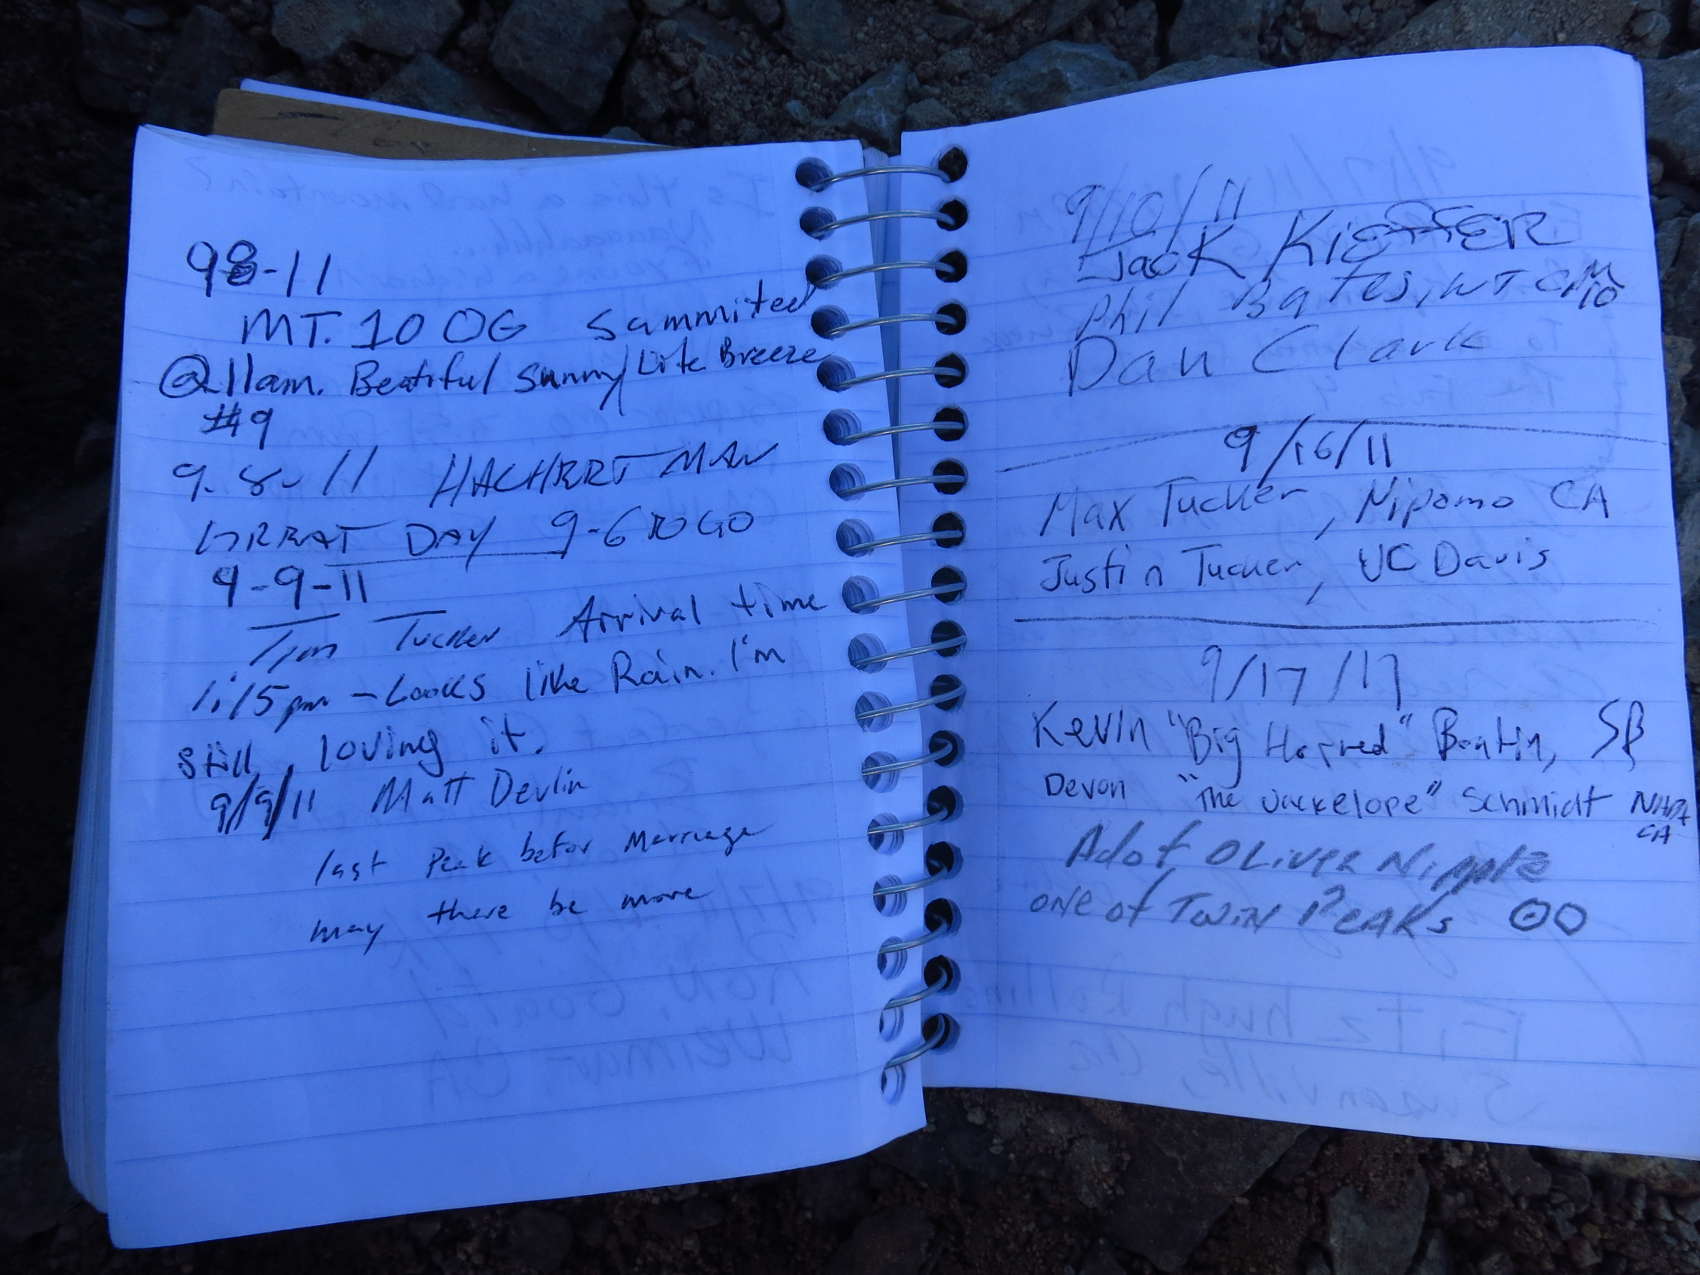 98-11
MT. 10 OG Sammited
@11am. Beatiful sunny/Lite Breeze
#9
9-8-11 HACHRRT MAN
GREAT DAY 9-6 TO GO
9-9-11
Tim Tucker Arrival time
1:15pm - Looks like Rain. I'm
still loving it.
9/9/11 Matt Devlin
last Peak befor Marriage
may there be more
9/10/11
Jack KiEFFER
Phil Bates, WT
Dan Clark
9/16/11
Max Tucker, Nipomo CA
Justin Tucker, UC Davis
9/17/11
Kevin "Big Horned" Bontin, SB
Devon "The Jackelope" Schmidt NAPA
CA
Ado f OLIVER Nipple
one of TWIN PEAKS